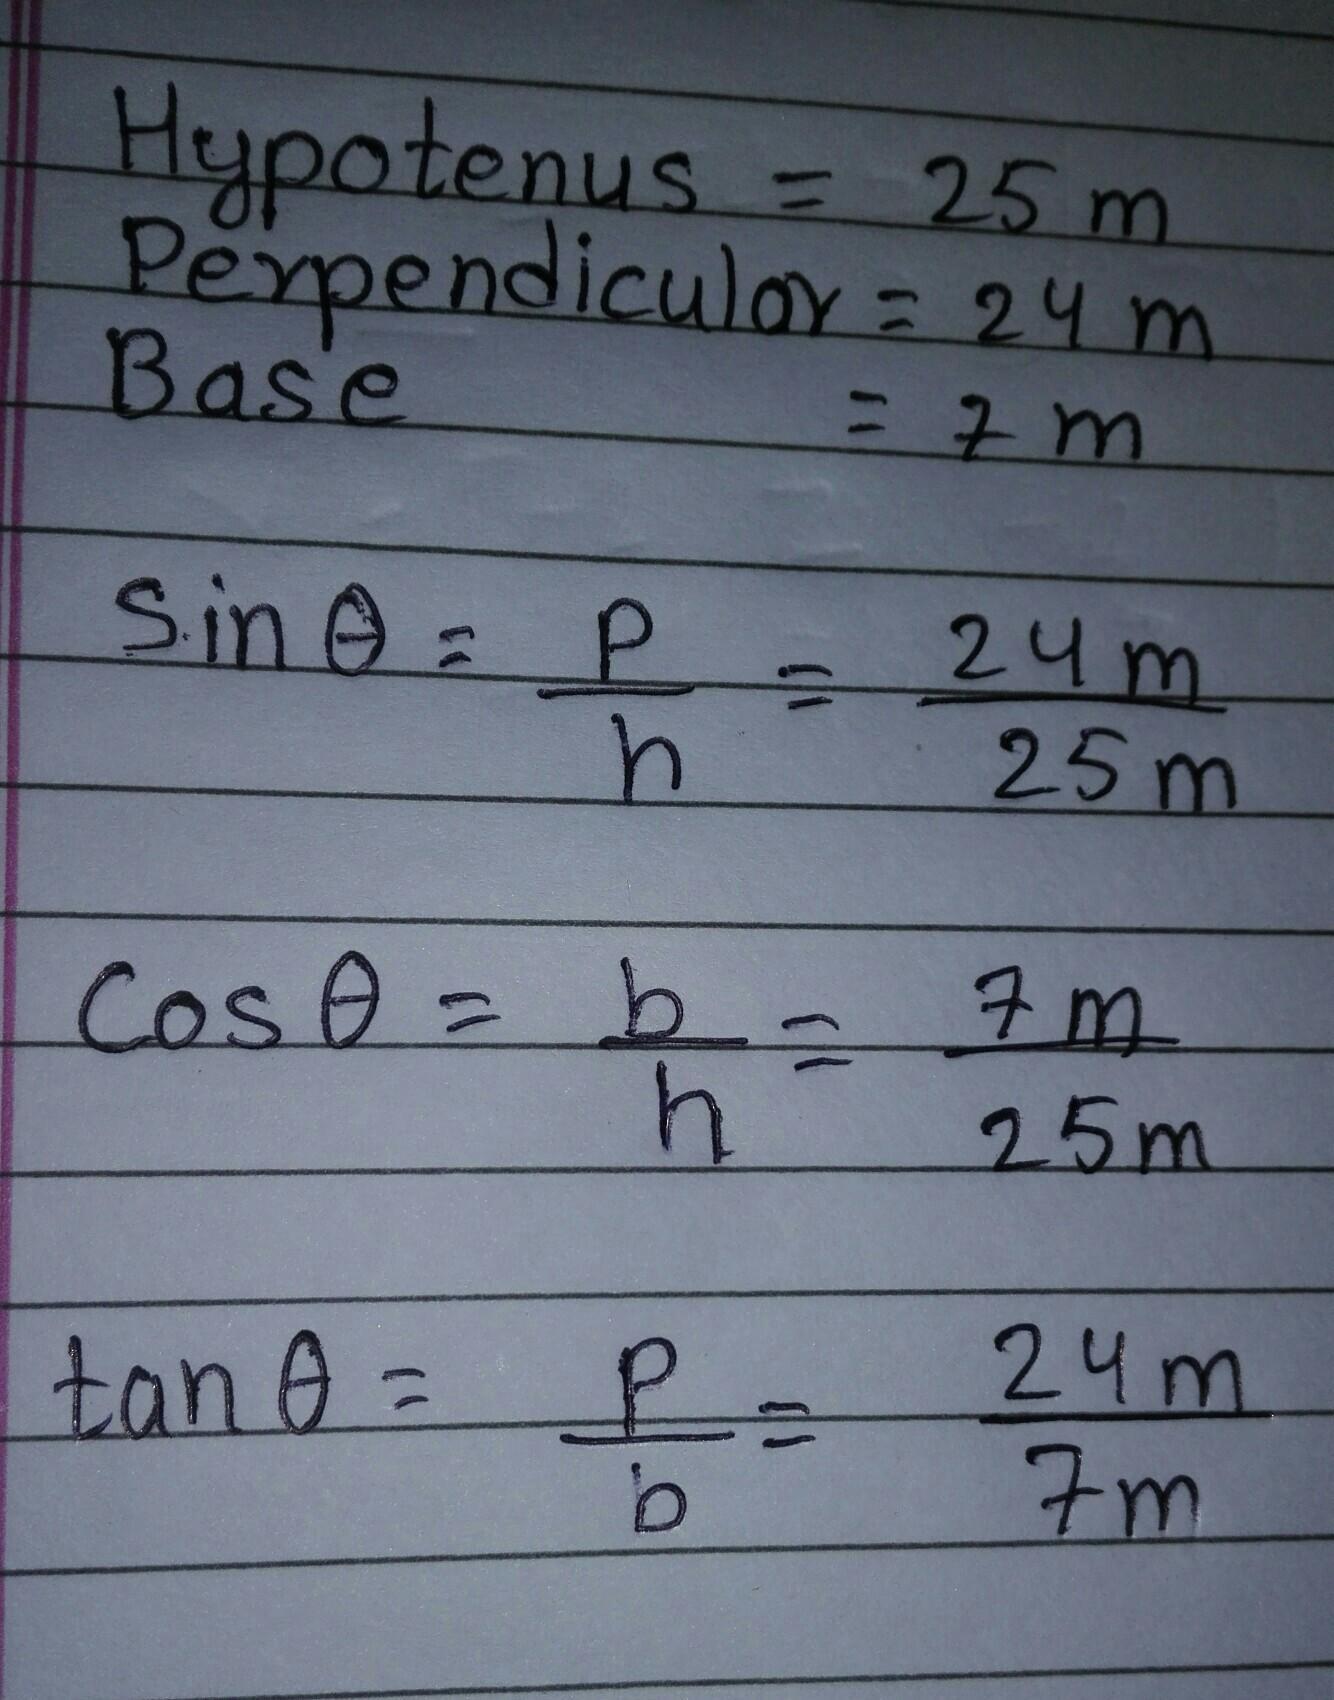 Hypotenus = 25 m
Perpendicular = 24 m
Base = 7 m
Sin θ = P/h = 24 m/25 m
Cos θ = b/h = 7 m/25 m
tan θ = P/b = 24 m/7 m